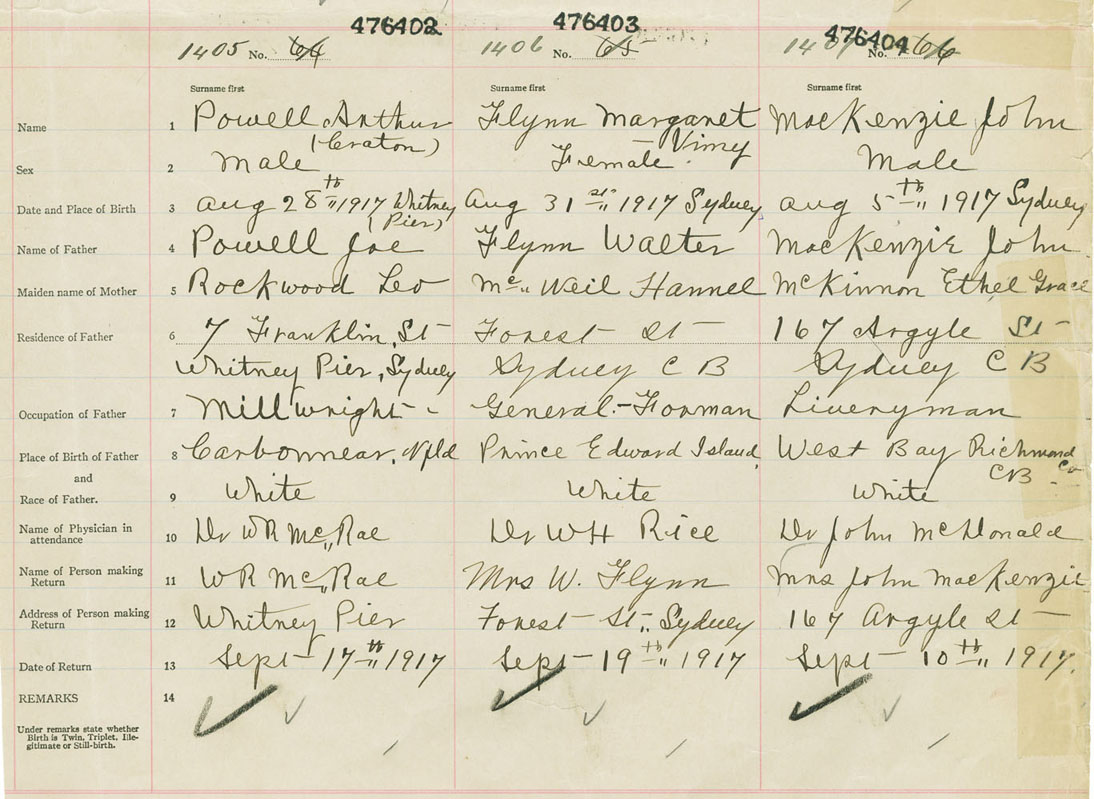 476402 476403 476404
1405 No. 64 1406 No. 65 No. 66
Surname first Surname first Surname first
Name 1 Powell Arthur Flynn Margaret MacKenzie John
(Craton) Vimy
Sex 2 Male Female Male
Date and Place of Birth 3 Aug 28th 1917 Whitney Aug 31st 1917 Sydney Aug 5th 1917 Sydney
(Pier)
Name of Father 4 Powell Joe Flynn Walter MacKenzie John
Maiden name of Mother 5 Rockwood Leo Mc Neil Hannel McKinnon Ethel Grace
Residence of Father 6 7 Franklin St Forest St 167 Argyle St
Whitney Pier, Sydney Sydney C B Sydney C B
Occupation of Father 7 Millwright General-Forman Liveryman
Place of Birth of Father 8 Carbonnear, Nfld Prince Edward Island West Bay Richmond Co
and CB
Race of Father. 9 White White White
Name of Physician in
attendance 10 Dr WR McRae Dr WH Rice Dr John McDonald
Name of Person making
Return 11 WR McRae Mrs W. Flynn Mrs John MacKenzie
Address of Person making
Return 12 Whitney Pier Forest St., Sydney 167 Argyle St
Date of Return 13 Sept 17th 1917 Sept 19th 1917 Sept 10th 1917.
REMARKS 14
Under remarks state whether
Birth is Twin, Triplet, Ille-
gitimate or Still-birth.